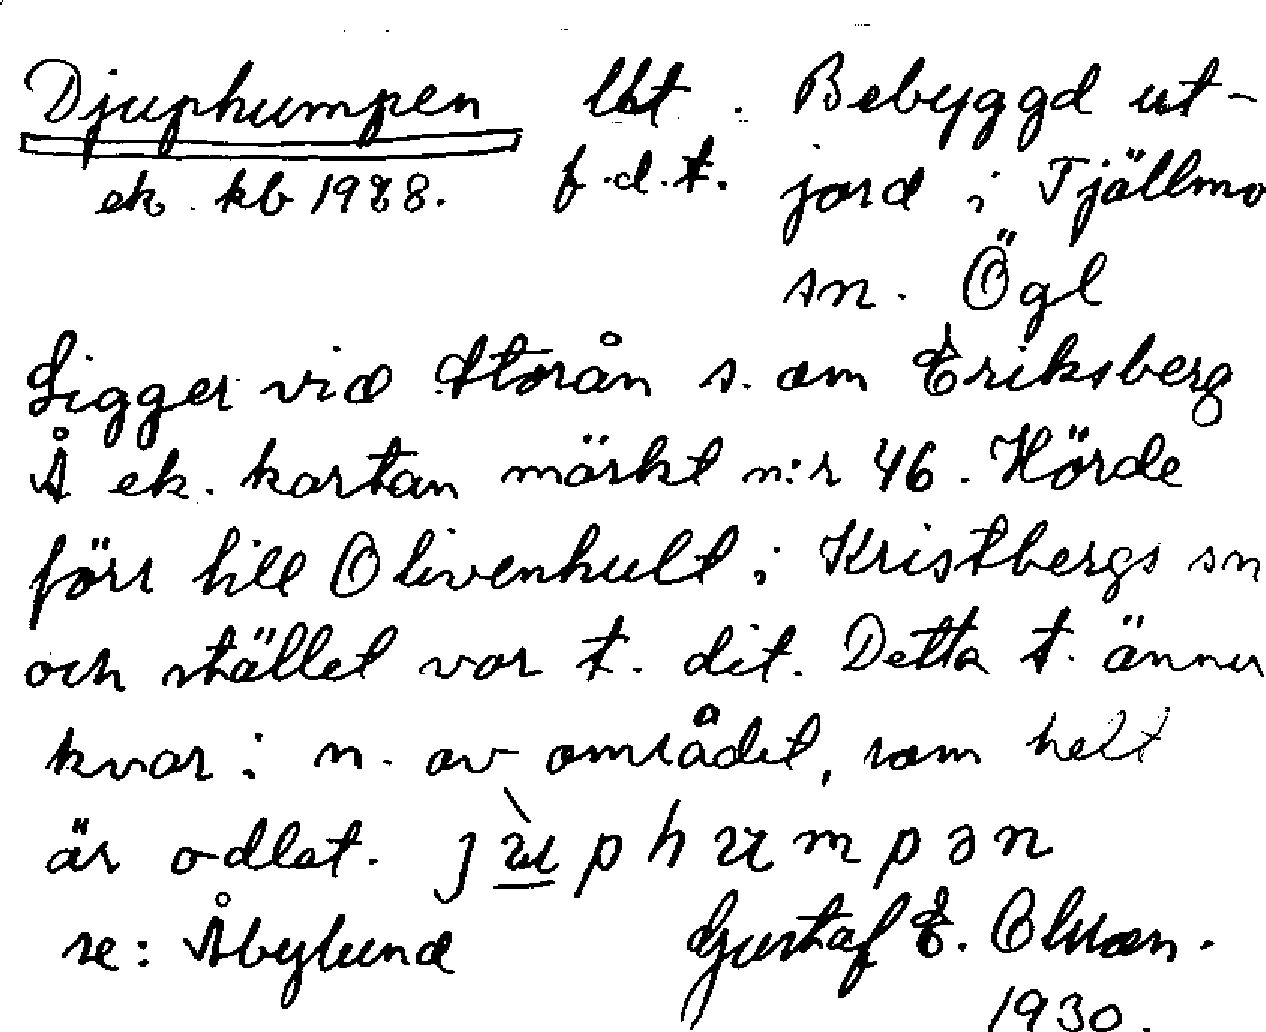 Djuphumpen lht. Bebyggd ut-
ek. kb 1988. f.d.t. jord i Tjällmo
sn. Ögl
Ligger vid Storån s. om Eriksberg
Å ek. kartan märkt n:r 46. Hörde
förr till Olivenhult i Kristbergs sn
och stället var t. dit. Detta t. ännu
kvar i n. av området, som helt
är odlat. jùphumpən
se: Åbylund Gustaf E. Olsson.
1930.